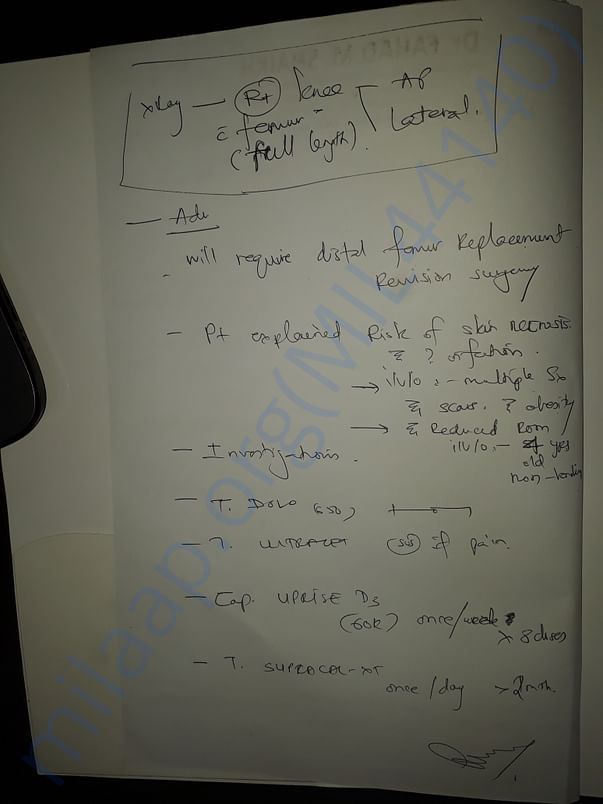 Dr FAHAD M SHAIKH
XRay — Rt knee AP
c̄ femur - Lateral.
(full length).
— Adv
- will require distal femur Replacement
Revision surgery
- Pt explained Risk of skin necrosis
c̄ ? infection.
→ i/v/o :- multiple Sx
c̄ scars. c̄ obesity
→ c̄ Reduced ROM
i/v/o :- yrs
old
non-
- Investigations.
- T. DOLO 650,
- T. ULTRACET SOS if pain.
- Cap. UPRISE D3
(60K) once/week
x 8 doses
- T. SUPRACAL-XT
once/day
milaap.org(MIL44140)